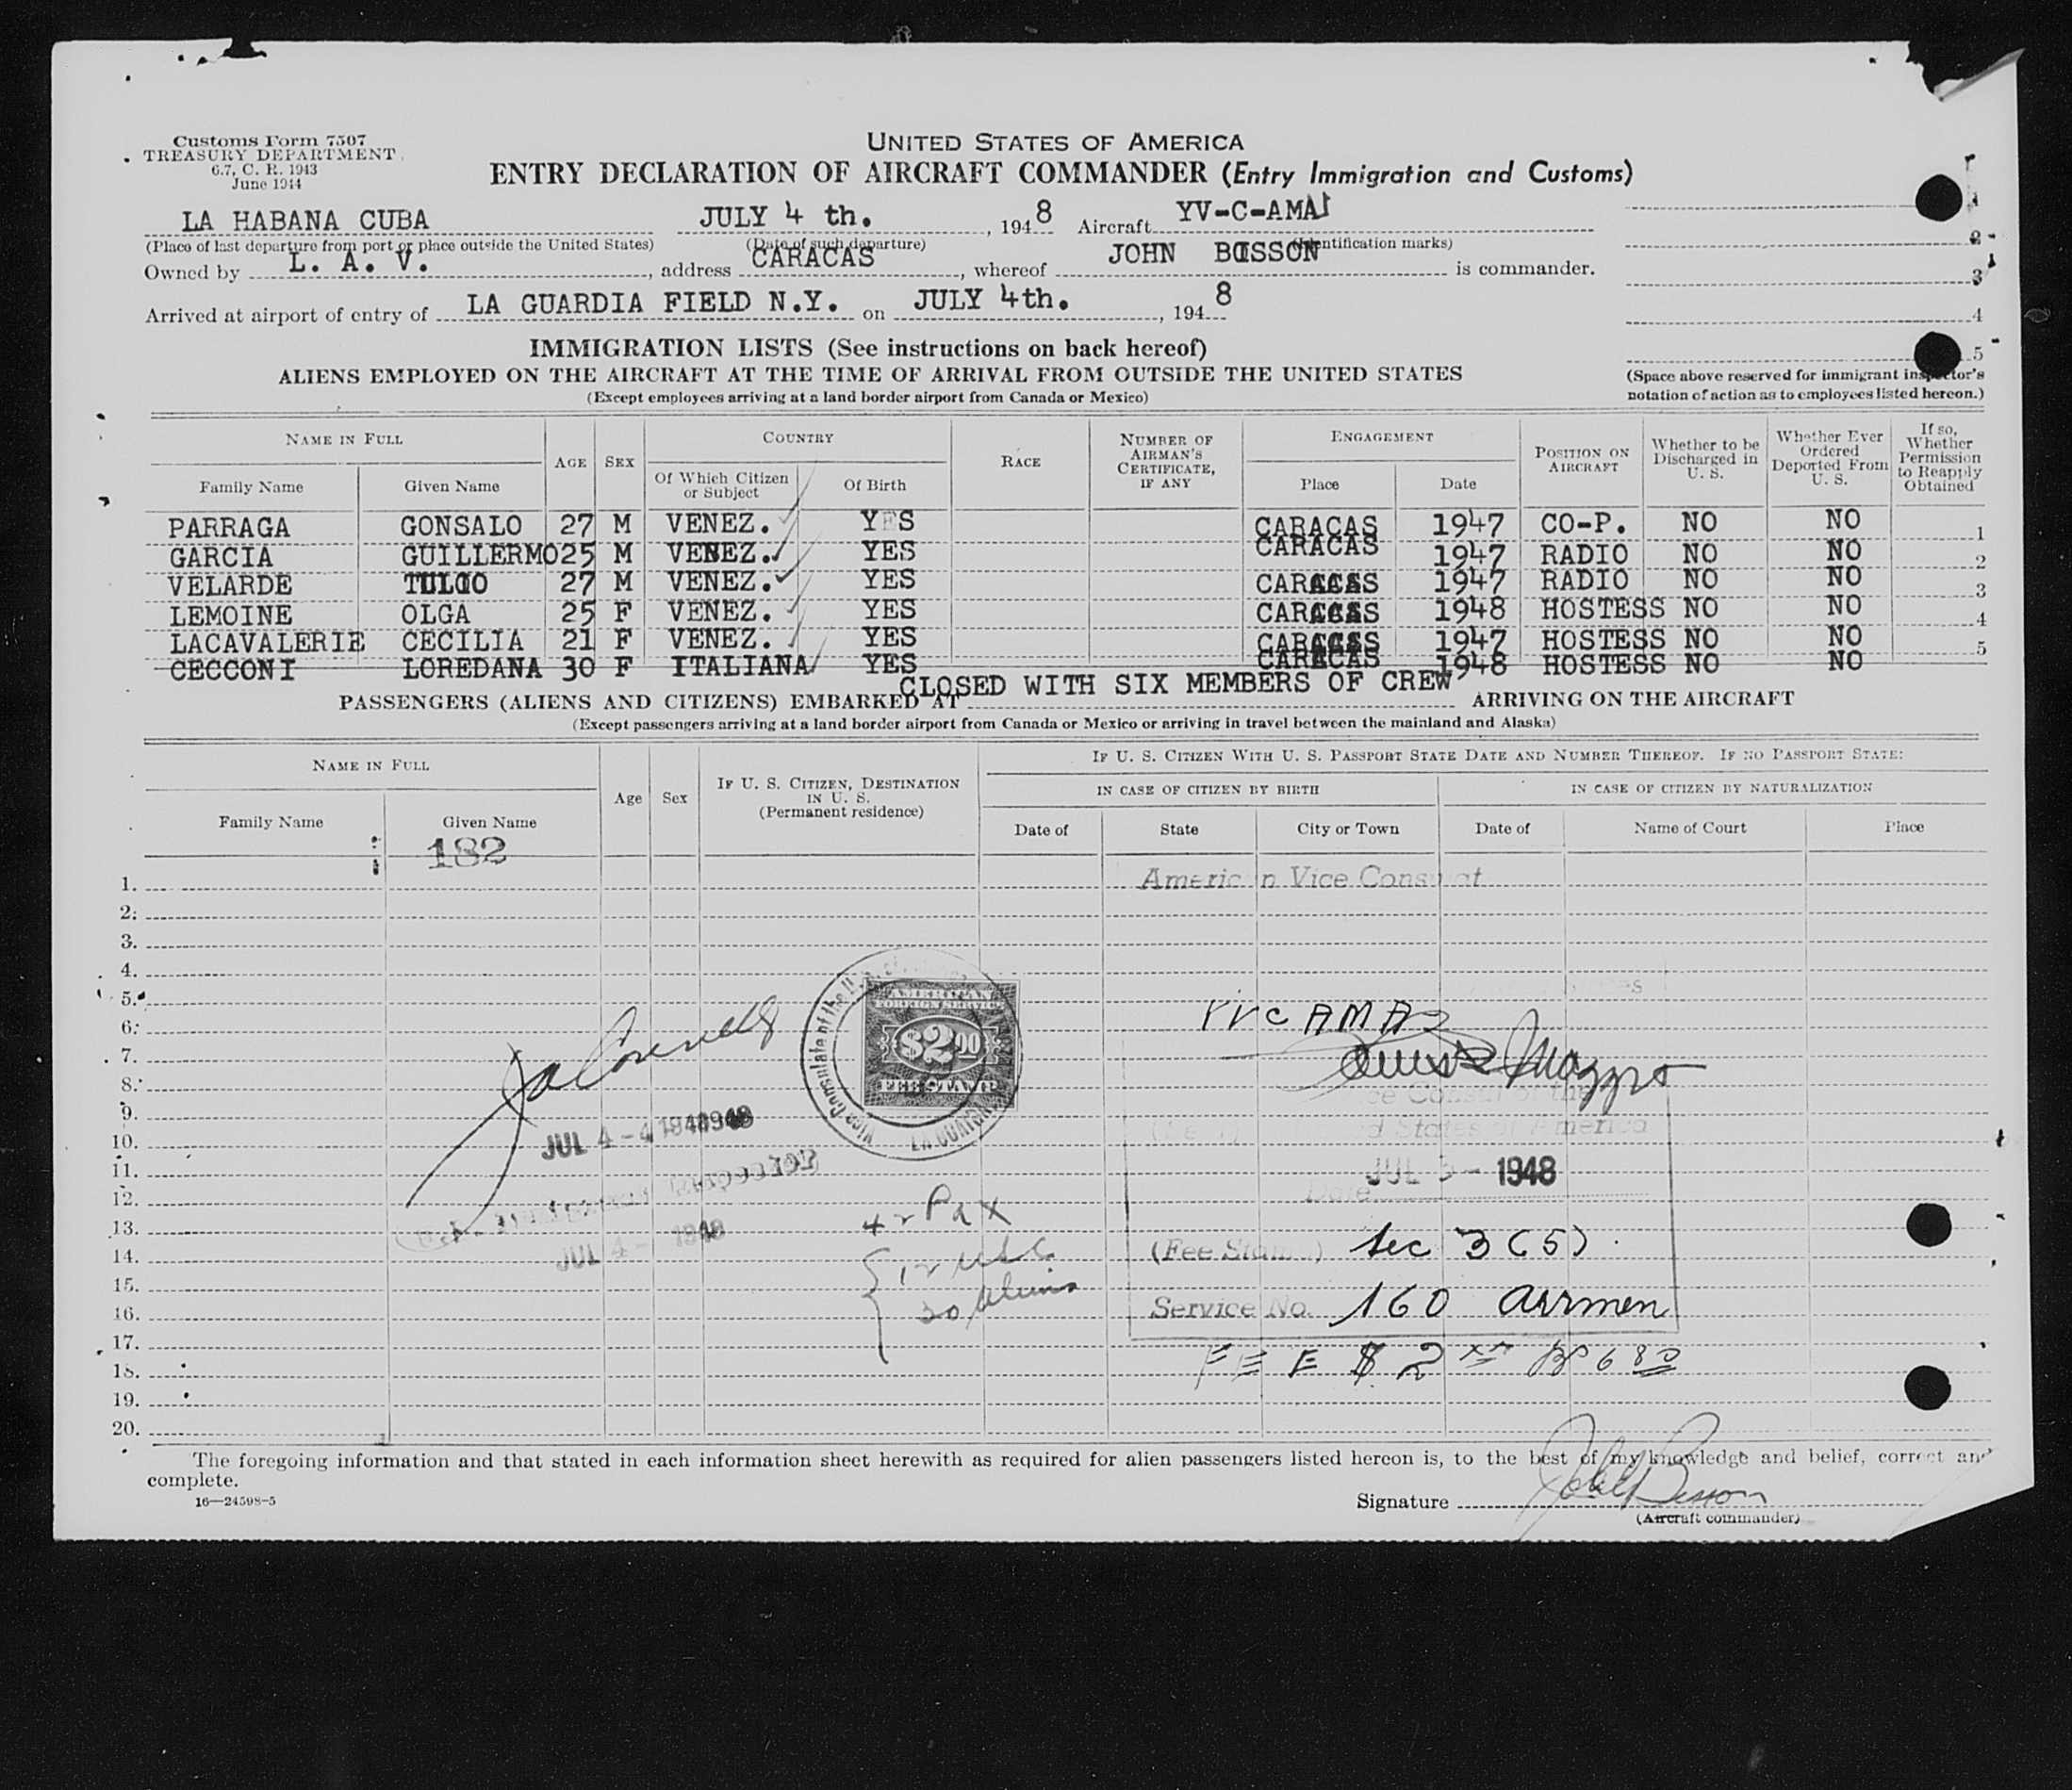 Customs Form 7507
TREASURY DEPARTMENT
6.7, C. R. 1943
June 1944
UNITED STATES OF AMERICA
ENTRY DECLARATION OF AIRCRAFT COMMANDER (Entry Immigration and Customs)
LA HABANA CUBA JULY 4 th. , 1948 Aircraft YV-C-AMA
(Place of last departure from port or place outside the United States) (Date of such departure) (Identification marks)
Owned by L. A. V. , address CARACAS , whereof JOHN is commander.
Arrived at airport of entry of LA GUARDIA FIELD N.Y. on JULY 4th. , 1948
2
3
4
5
IMMIGRATION LISTS (See instructions on back hereof)
ALIENS EMPLOYED ON THE AIRCRAFT AT THE TIME OF ARRIVAL FROM OUTSIDE THE UNITED STATES
(Except employees arriving at a land border airport from Canada or Mexico)
(Space above reserved for immigrant inspector's
notation of action as to employees listed hereon.)
NAME IN FULL AGE SEX COUNTRY RACE NUMBER OF AIRMAN'S CERTIFICATE, IF ANY ENGAGEMENT POSITION ON AIRCRAFT Whether to be Discharged in U. S. Whether Ever Ordered Deported From U. S. If so, Whether Permission to Reapply Obtained
Family Name Given Name Of Which Citizen or Subject Of Birth Place Date
PARRAGA GONSALO 27 M VENEZ. YES CARACAS 1947 CO-P. NO NO 1
GARCIA GUILLERMO 25 M VENEZ. YES CARACAS 1947 RADIO NO NO 2
VELARDE TULIO 27 M VENEZ. YES CARACAS 1947 RADIO NO NO 3
LEMOINE OLGA 25 F VENEZ. YES CARACAS 1948 HOSTESS NO NO 4
LACAVALERIE CECILIA 21 F VENEZ. YES CARACAS 1947 HOSTESS NO NO 5
CECCONI LOREDANA 30 F ITALIANA YES CARACAS 1948 HOSTESS NO NO
CLOSED WITH SIX MEMBERS OF CREW
PASSENGERS (ALIENS AND CITIZENS) EMBARKED AT ARRIVING ON THE AIRCRAFT
(Except passengers arriving at a land border airport from Canada or Mexico or arriving in travel between the mainland and Alaska)
NAME IN FULL Age Sex IF U. S. CITIZEN, DESTINATION IN U. S. (Permanent residence) IF U. S. CITIZEN WITH U. S. PASSPORT STATE DATE AND NUMBER THEREOF. IF NO PASSPORT STATE:
IN CASE OF CITIZEN BY BIRTH IN CASE OF CITIZEN BY NATURALIZATION
Family Name Given Name Date of State City or Town Date of Name of Court Place
182
1. American Vice Consulat
2.
3.
4.
5.
6. AMA
7.
8.
9.
10.
11.
12.
13.
14.
15.
16.
17.
18.
19.
20.
AMERICAN
FOREIGN SERVICE
$2.00
FEE STAMP
Vice Consulate of the
LA GUAIRA
JUL 4 - 1948
JUL 4 - 1948
42 Pax
12 USC
30 Aliens
Vice Consul of the
United States of America
JUL - 1948
Date
(Fee Stamp) Sec 3(5)
Service No. 160 Airmen
FEE $ 2
The foregoing information and that stated in each information sheet herewith as required for alien passengers listed hereon is, to the best of my knowledge and belief, correct and
complete.
16—24598-5
Signature
(Aircraft commander)